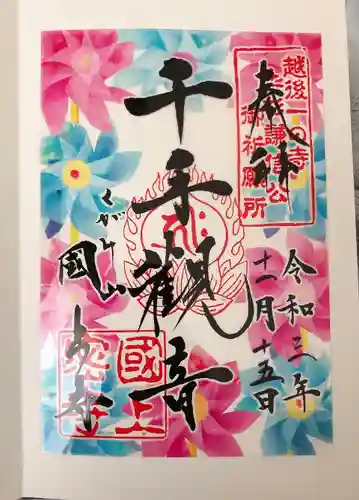 越後一の寺
上杉謙信公
御祈願所
奉拝
令和三年
十一月十五日
千手観音
くがみ
國上
國上